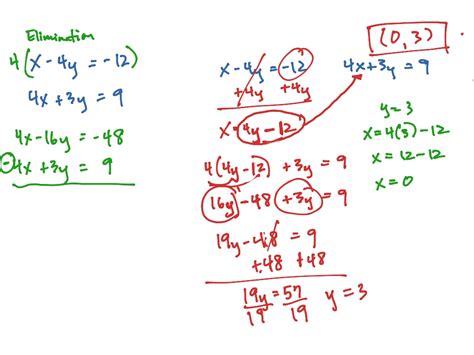 Elimination
4(x-4y=-12)
4x+3y=9
4x-16y=-48
-4x+3y=9
x-4y=-12
+4y +4y
x=4y-12
4(4y-12)+3y=9
16y-48+3y=9
19y-48=9
+48 +48
19y=57
19 19
y=3
(0,3)
4x+3y=9
y=3
x=4(3)-12
x=12-12
x=0